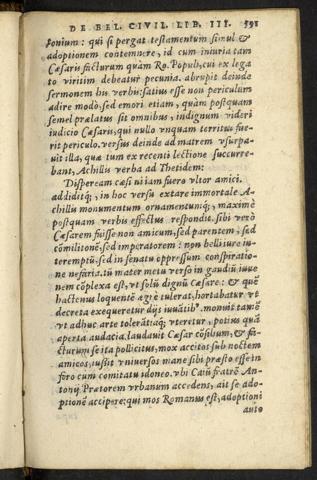 DE BEL. CIVIL. LIB. III. 591
tonium: qui si pergat testamentum simul &
adoptionem contemnere, id cum iniuria tam
Cæsaris facturum quàm Ro. Populi, cui ex lega
to viritim debeatur pecunia. abrupit deinde
sermonem his verbis: satius esse non periculum
adire modò, sed emori etiam, quàm postquam
semel prælatus sit omnibus, indignum videri
iudicio Cæsaris, qui nullo vnquam territus fue-
rit periculo. versus deinde ad matrem vsurpa-
uit illa, quæ tum ex recenti lectione succurre-
bant, Achillis verba ad Thetidem:
Dispeream cæsi ni iam fuero vltor amici.
addiditq́; in hoc versu extare immortale A-
chillis monumentum ornamentumq́;: maximè
postquam verbis effectus respondit. sibi verò
Cæsarem fuisse non amicum, sed parentem, sed
cōmilitonē, sed imperatorem: non belli iure in-
teremptū, sed in senatu oppressum conspiratio-
ne nefaria. tū mater metu verso in gaudiū iuue
nem cōplexa est, vt solū dignū Cæsare: & quē
hactenus loquentē ægrè tulerat, hortabatur vt
decreta exequeretur dijs iuuātib⁹. monuit tamē
vt adhuc arte tolerātiaq́; vteretur, potius quā
aperta audacia. laudauit Cæsar cōsilium, & fa-
cturum se ita pollicitus, mox accitos sub noctem
amicos, iussit vniuersos mane sibi præstò esse in
foro cum comitatu idoneo. vbi Caiū fratrē An-
tonij Prætorem vrbanum accedens, ait se ado-
ptionē accipere: qui mos Romanus est, adoptioni
auto